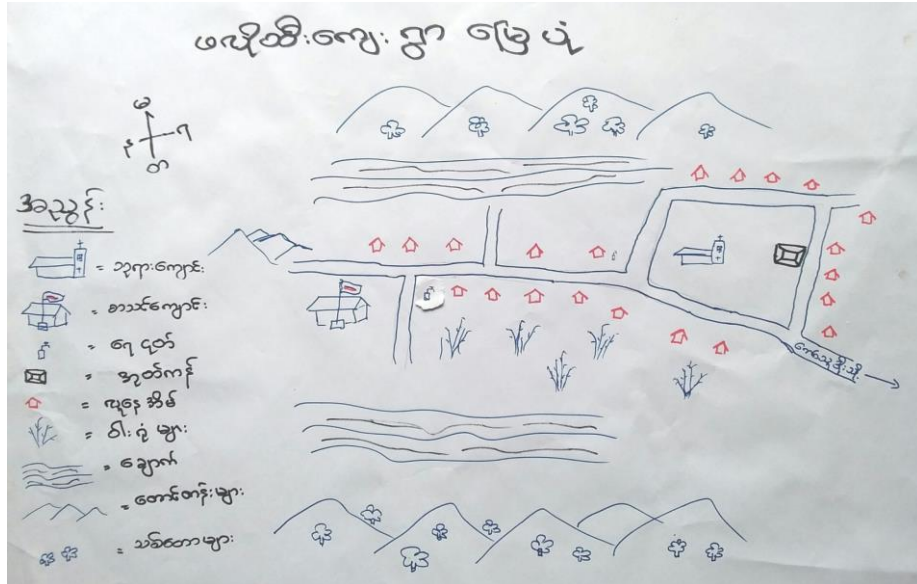 ဖလိုဆီးကျေး ရွာ မြေပုံ
မ
န
ရ
တ
အညွှန်း
= ဘုရားကျောင်း
= စာသင်ကျောင်း
= ရေ ငုတ်
= အုတ်ကန်
= လူနေအိမ်
= ဝါးရုံ များ
= ချောက်
= တောင်တန်းများ
= သစ်တောများ